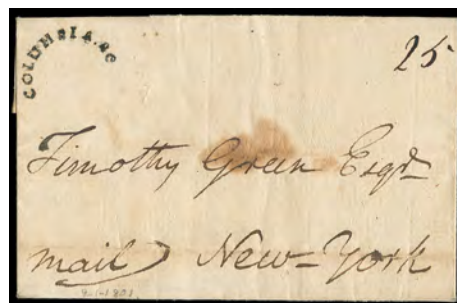 COLUMBIA. SC
25
Timothy Green Esqr
mail) New-York
9-1-1801.